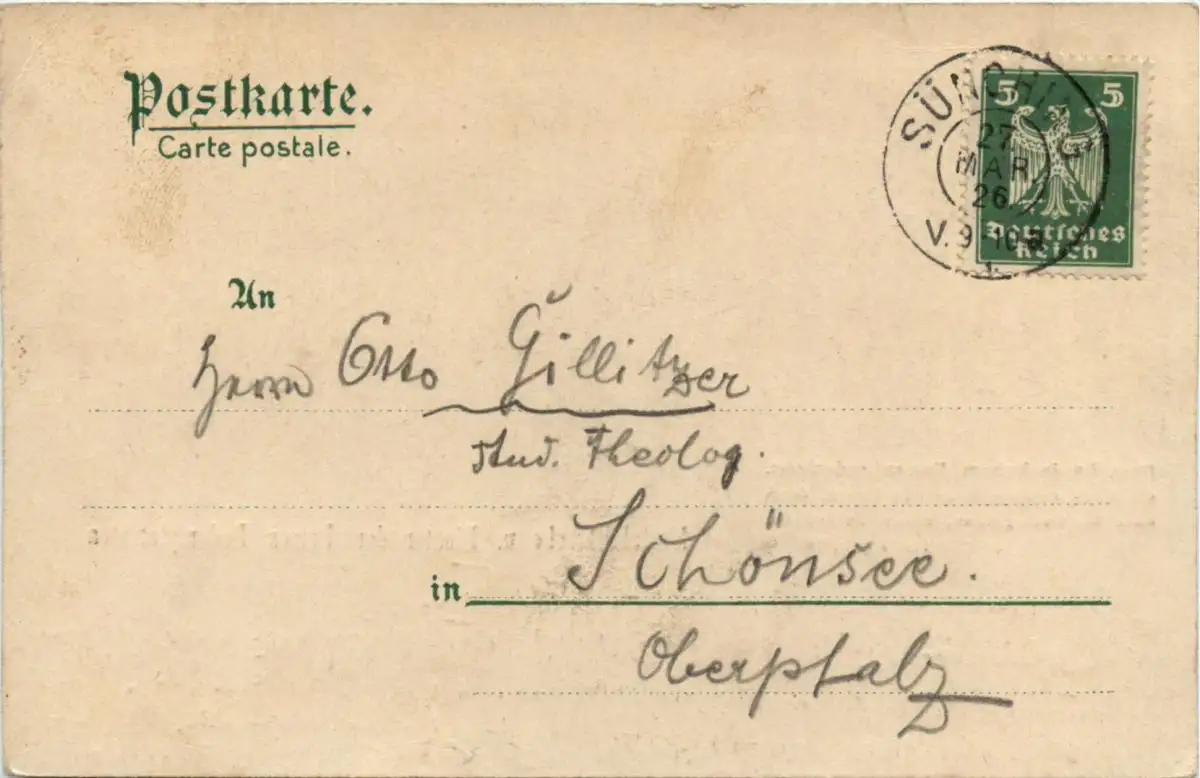 Postkarte.
Carte postale.
SÜNCHING
27
MAR
26
V. 9-10
5 5
Deutsches
Reich
An
Herrn Otto Gillitzer
stud. Theolog.
in Schönsee.
Oberpfalz